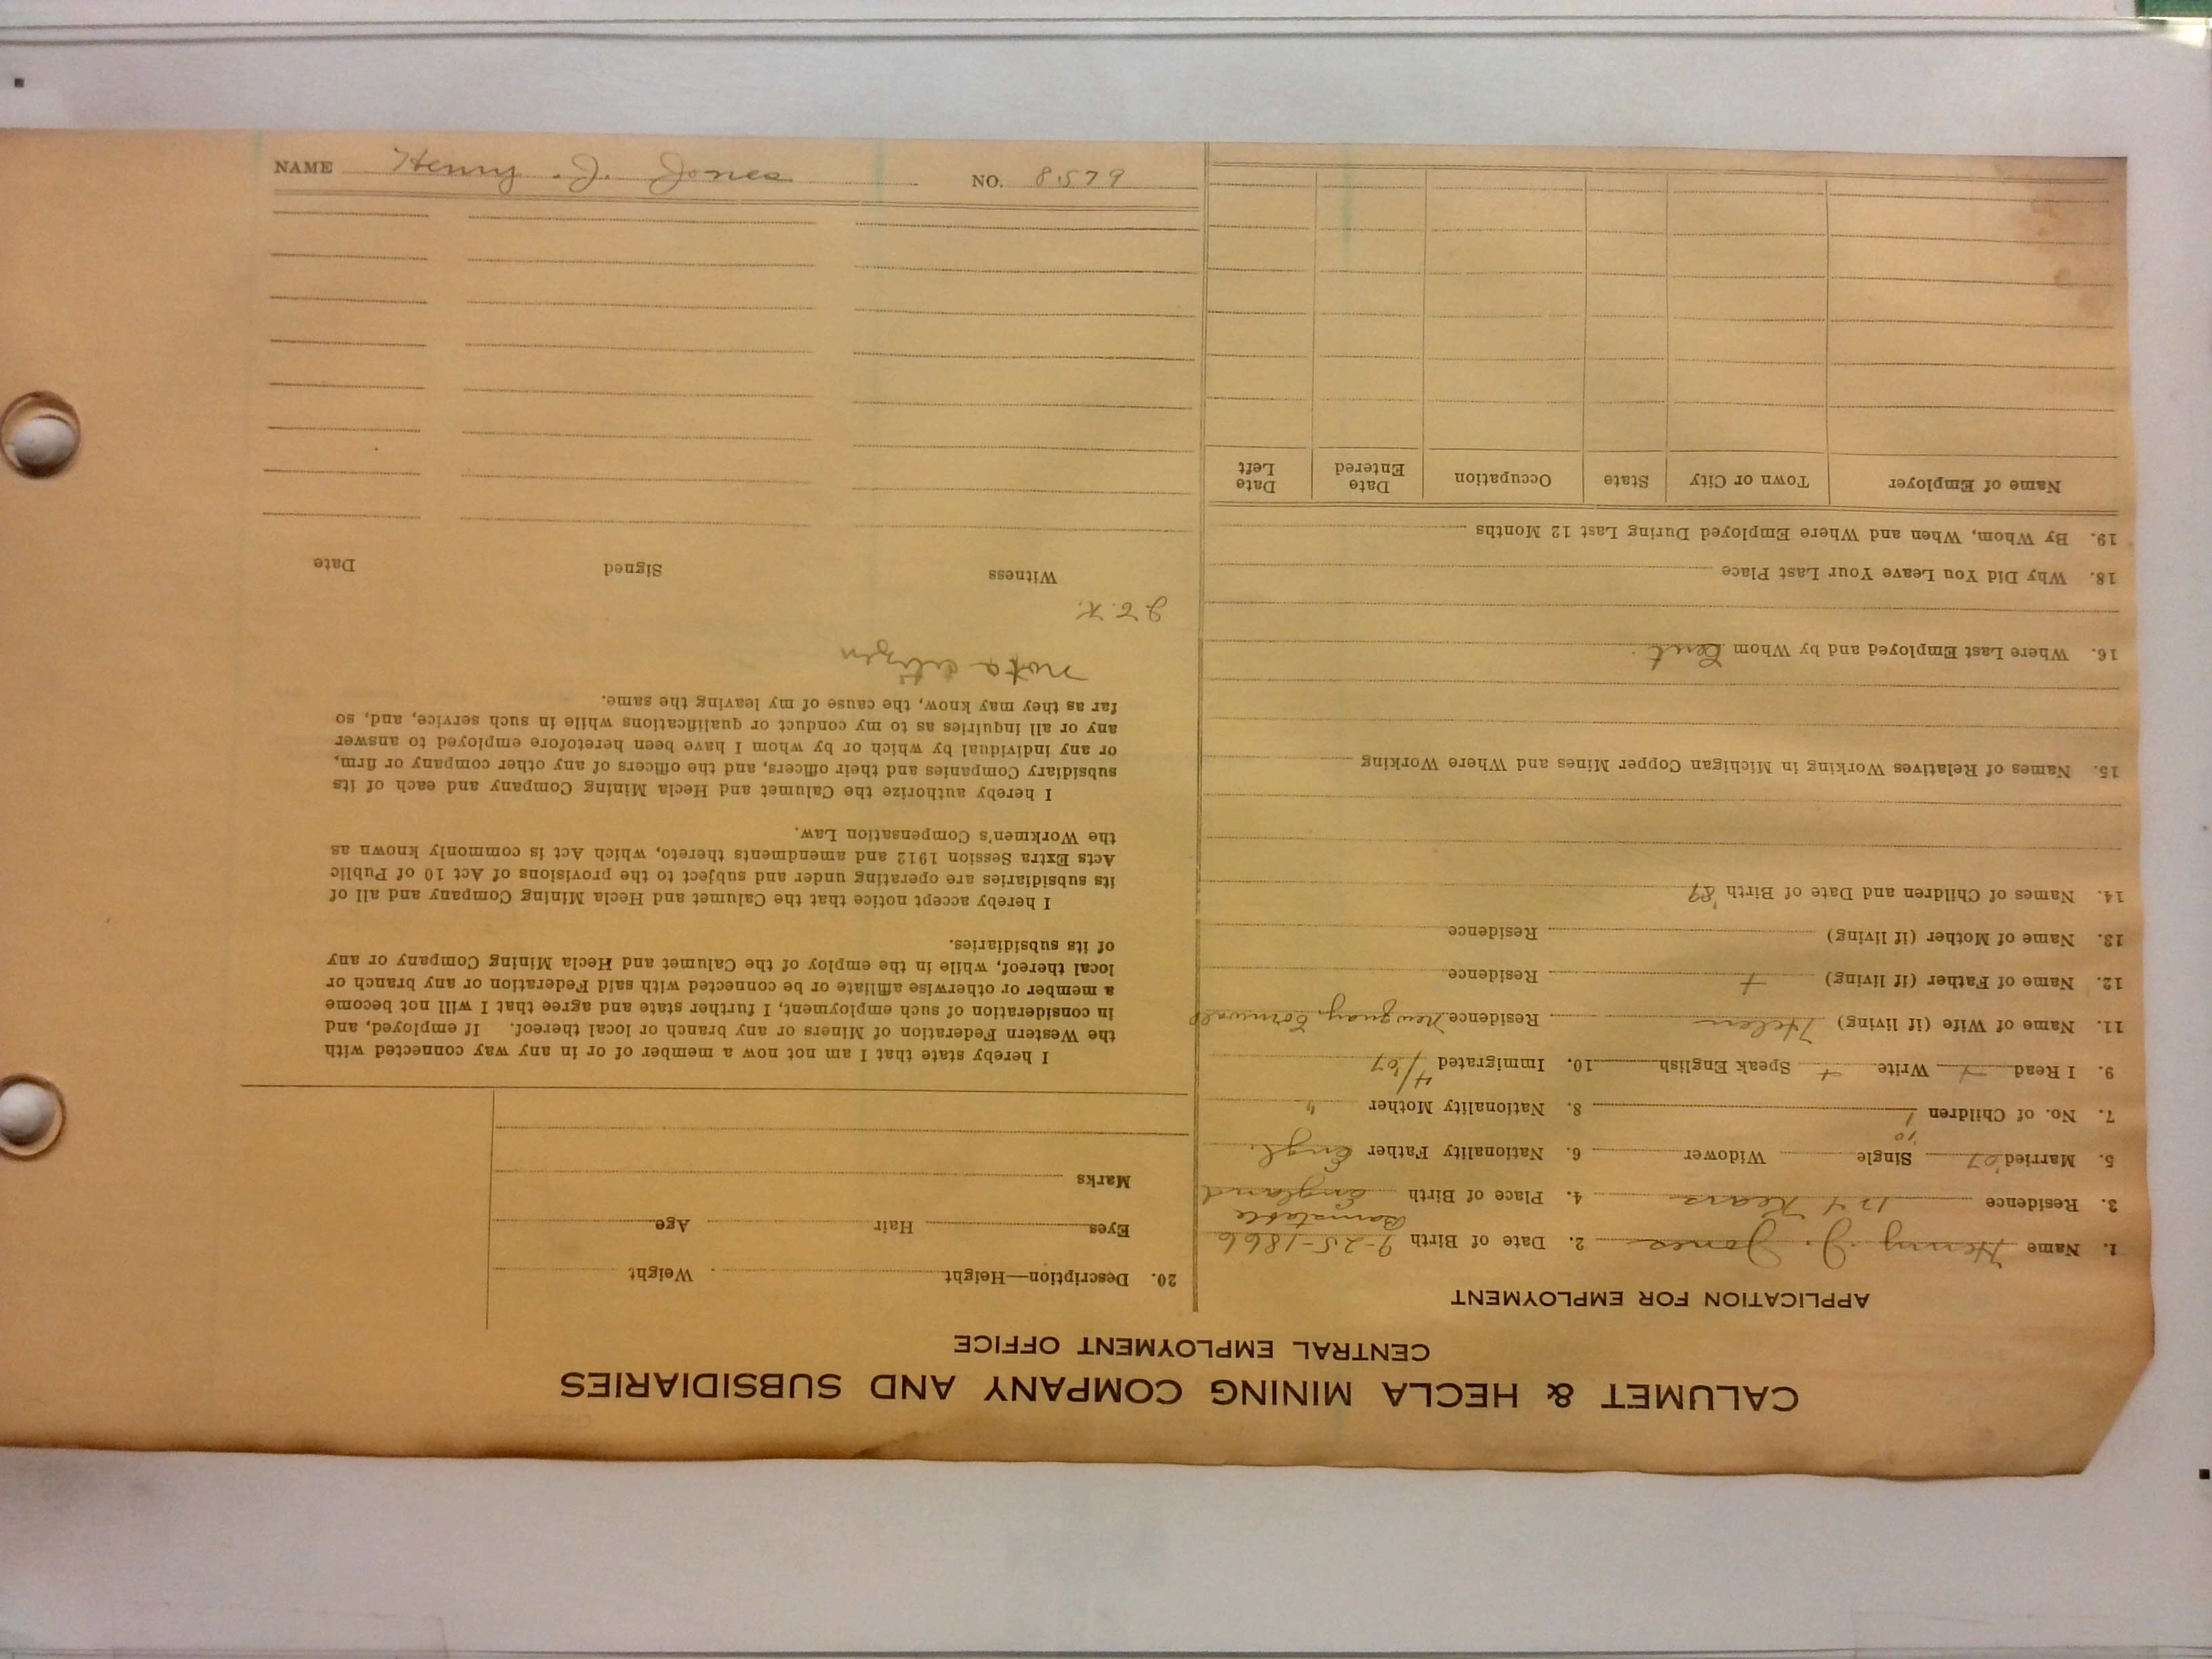 CALUMET & HECLA MINING COMPANY AND SUBSIDIARIES
CENTRAL EMPLOYMENT OFFICE
APPLICATION FOR EMPLOYMENT
1. Name Henry J. Jones 2. Date of Birth 9-25-1866
Barnstable
3. Residence 124 Kears 4. Place of Birth England
5. Married '07 Single Widower 6. Nationality Father Engl.
'10
7. No. of Children 1 8. Nationality Mother "
9. I Read + Write + Speak English 10. Immigrated 4/'07
11. Name of Wife (if living) Helen Residence Newquay, Cornwall
12. Name of Father (if living) + Residence
13. Name of Mother (if living) Residence
14. Names of Children and Date of Birth '89
15. Names of Relatives Working in Michigan Copper Mines and Where Working
16. Where Last Employed and by Whom
18. Why Did You Leave Your Last Place
19. By Whom, When and Where Employed During Last 12 Months
Name of Employer Town or City State Occupation Date Entered Date Left
20. Description—Height Weight
Eyes Hair Age
Marks
I hereby state that I am not now a member of or in any way connected with
the Western Federation of Miners or any branch or local thereof. If employed, and
in consideration of such employment, I further state and agree that I will not become
a member or otherwise affiliate or be connected with said Federation or any branch or
local thereof, while in the employ of the Calumet and Hecla Mining Company or any
of its subsidiaries.
I hereby accept notice that the Calumet and Hecla Mining Company and all of
its subsidiaries are operating under and subject to the provisions of Act 10 of Public
Acts Extra Session 1912 and amendments thereto, which Act is commonly known as
the Workmen's Compensation Law.
I hereby authorize the Calumet and Hecla Mining Company and each of its
subsidiary Companies and their officers, and the officers of any other company or firm,
or any individual by which or by whom I have been heretofore employed to answer
any or all inquiries as to my conduct or qualifications while in such service, and, so
far as they may know, the cause of my leaving the same.
Not a citizen
Witness Signed Date
NAME Henry J. Jones NO. 8579